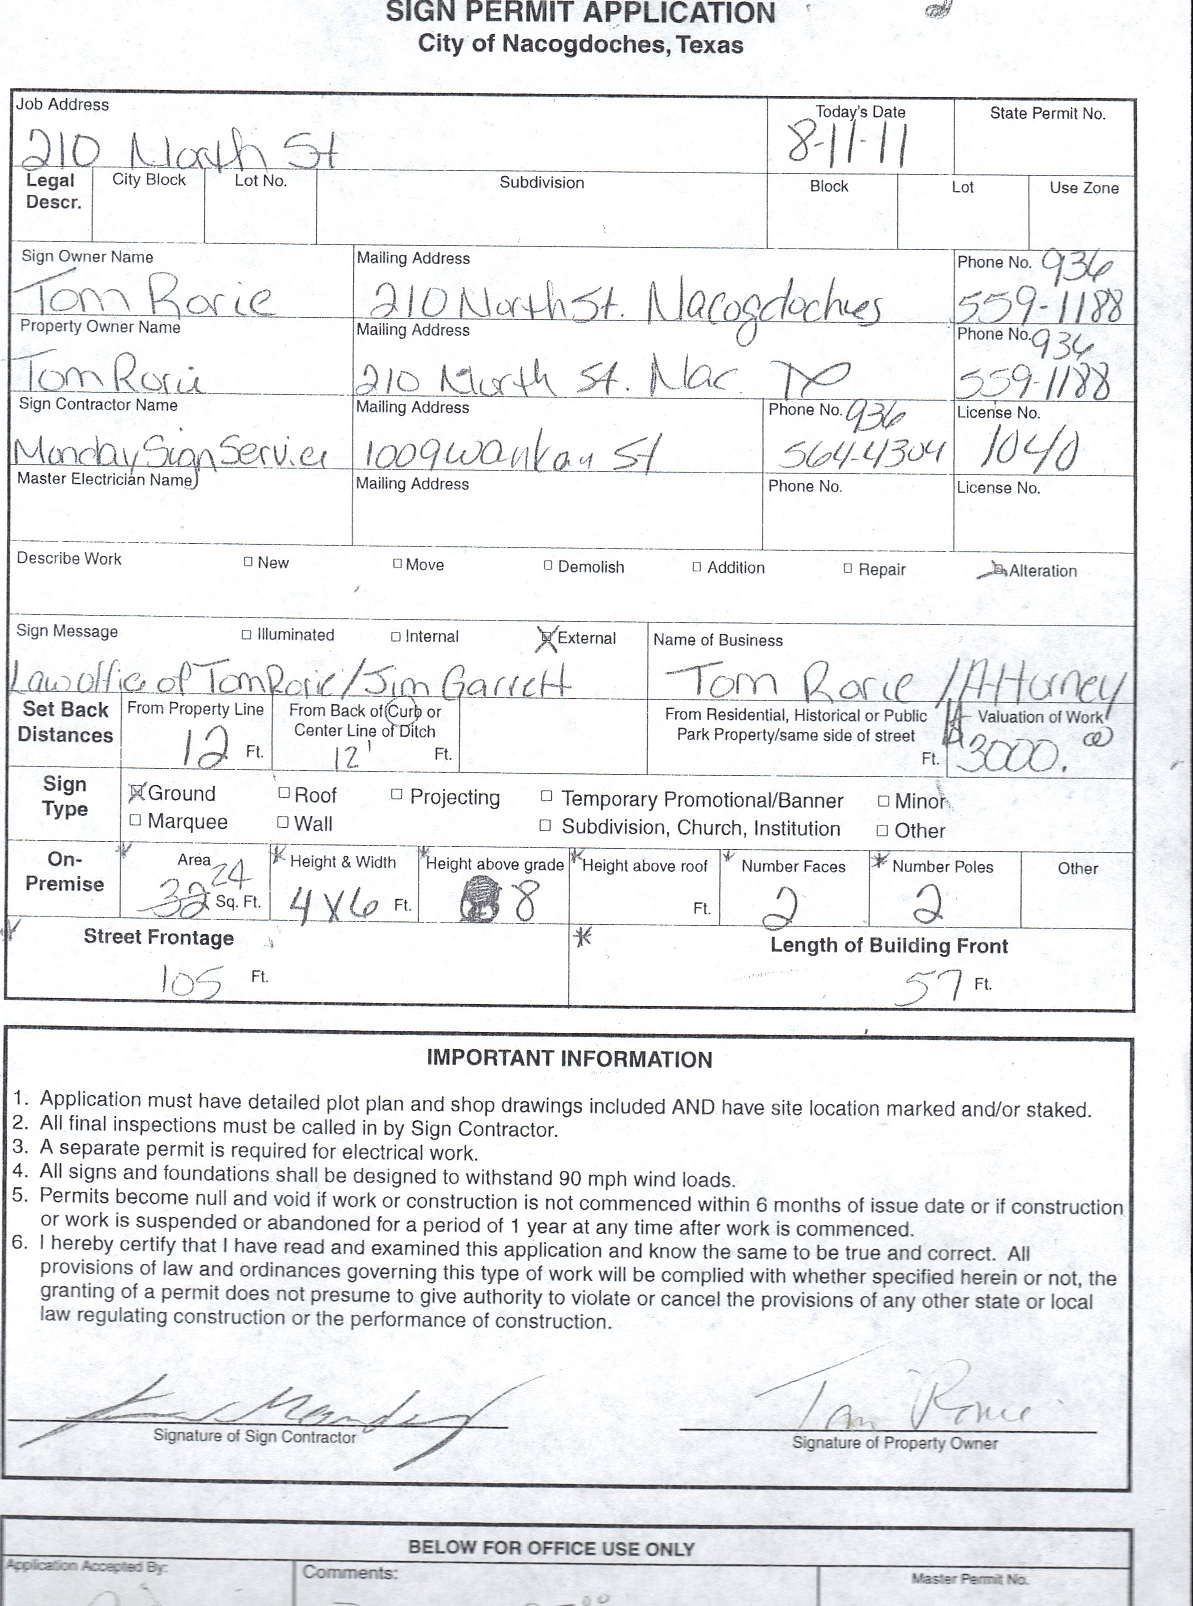 SIGN PERMIT APPLICATION
City of Nacogdoches, Texas
Job Address
210 North St
Today's Date
8-11-11
State Permit No.
Legal Descr.
City Block
Lot No.
Subdivision
Block
Lot
Use Zone
Sign Owner Name
Tom Rorie
Mailing Address
210 North St. Nacogdoches
Phone No. 936
559-1188
Property Owner Name
Tom Rorie
Mailing Address
210 North St. Nac TX
Phone No. 936
559-1188
Sign Contractor Name
Monday Sign Service
Mailing Address
1009 St
Phone No. 936
564-4304
License No.
1040
Master Electrician Name
Mailing Address
Phone No.
License No.
Describe Work
New
Move
Demolish
Addition
Repair
Alteration
Sign Message
Illuminated
Internal
External
Law office of Tom Rorie/Jim Garrett
Name of Business
Tom Rorie / Attorney
Set Back Distances
From Property Line
12 Ft.
From Back of Curb or
Center Line of Ditch
12' Ft.
From Residential, Historical or Public
Park Property/same side of street
Ft.
Valuation of Work
3000. 00
Sign Type
Ground
Roof
Projecting
Temporary Promotional/Banner
Minor
Marquee
Wall
Subdivision, Church, Institution
Other
On-Premise
* Area
32 24 Sq. Ft.
* Height & Width
4x6 Ft.
* Height above grade
8
* Height above roof
Ft.
* Number Faces
2
* Number Poles
2
Other
* Street Frontage
105 Ft.
* Length of Building Front
57 Ft.
IMPORTANT INFORMATION
1. Application must have detailed plot plan and shop drawings included AND have site location marked and/or staked.
2. All final inspections must be called in by Sign Contractor.
3. A separate permit is required for electrical work.
4. All signs and foundations shall be designed to withstand 90 mph wind loads.
5. Permits become null and void if work or construction is not commenced within 6 months of issue date or if construction
or work is suspended or abandoned for a period of 1 year at any time after work is commenced.
6. I hereby certify that I have read and examined this application and know the same to be true and correct. All
provisions of law and ordinances governing this type of work will be complied with whether specified herein or not, the
granting of a permit does not presume to give authority to violate or cancel the provisions of any other state or local
law regulating construction or the performance of construction.
Signature of Sign Contractor
Tom Rorie
Signature of Property Owner
BELOW FOR OFFICE USE ONLY
Application Accepted By:
Comments:
Master Permit No.